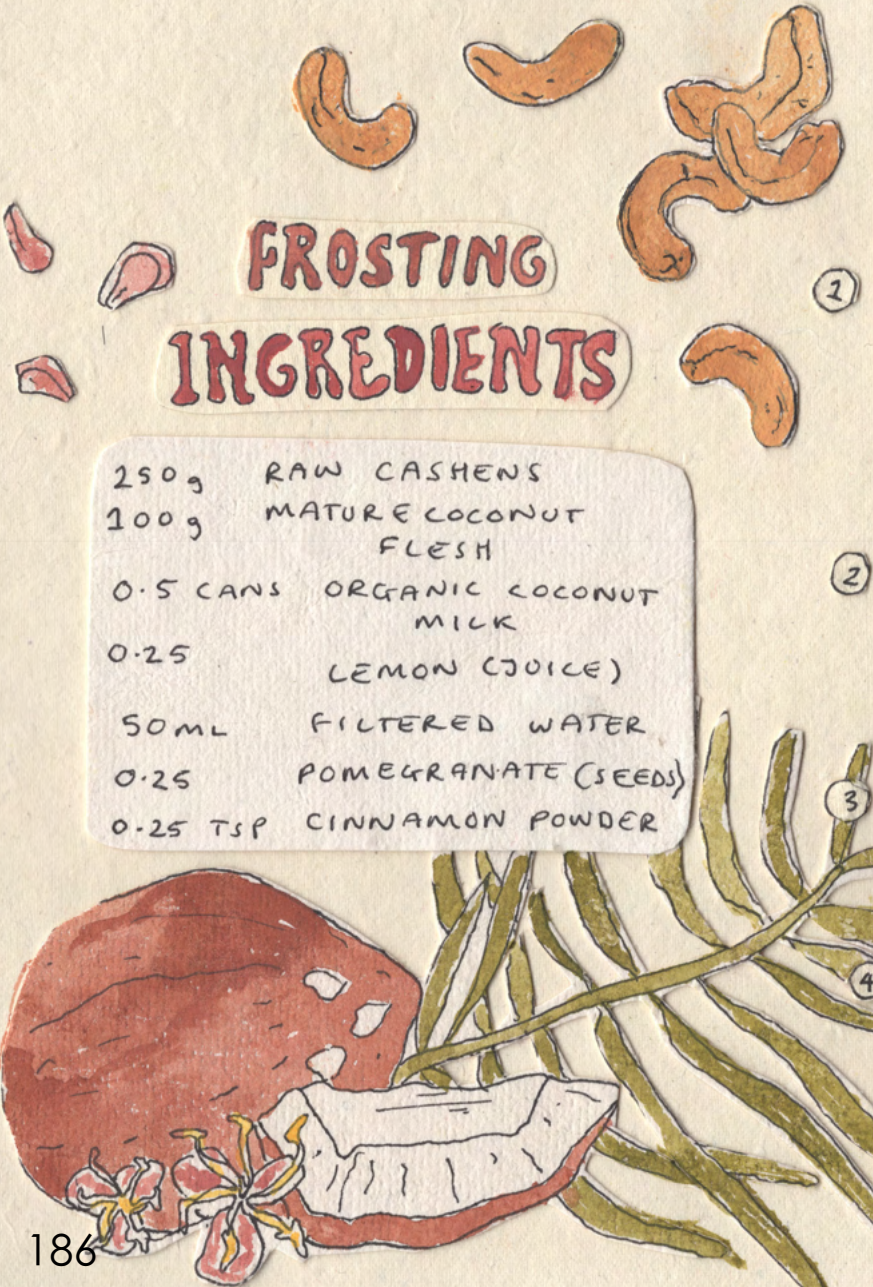 FROSTING
INGREDIENTS
250g RAW CASHEWS
100g MATURE COCONUT
FLESH
0.5 CANS ORGANIC COCONUT
MILK
0.25 LEMON (JUICE)
50ML FILTERED WATER
0.25 POMEGRANATE (SEEDS)
0.25 TSP CINNAMON POWDER
1
2
3
4
186